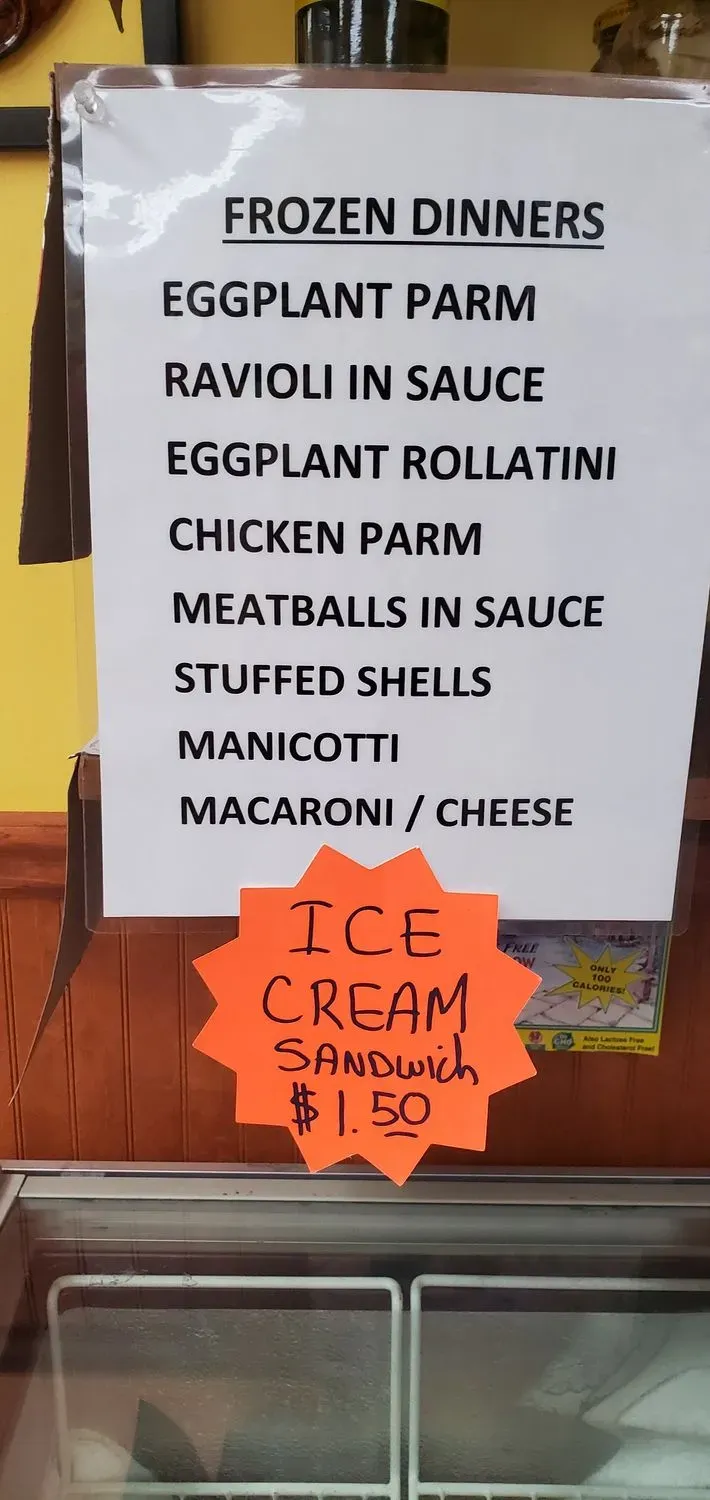 FROZEN DINNERS
EGGPLANT PARM
RAVIOLI IN SAUCE
EGGPLANT ROLLATINI
CHICKEN PARM
MEATBALLS IN SAUCE
STUFFED SHELLS
MANICOTTI
MACARONI / CHEESE
ICE
CREAM
SANDWICH
$1.50
FREE
OW
ONLY
100
CALORIES!
GMO
Also Lactose Free
and Cholesterol Free!